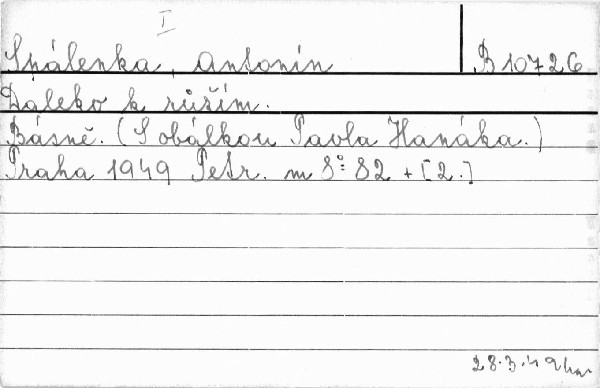 I
Spálenka, Antonín B 10726
Daleko k růžím.
Básně. (S obálkou Pavla Hanáka.)
Praha 1949 Petr. m 8°: 82 + [2.]
28.3.49